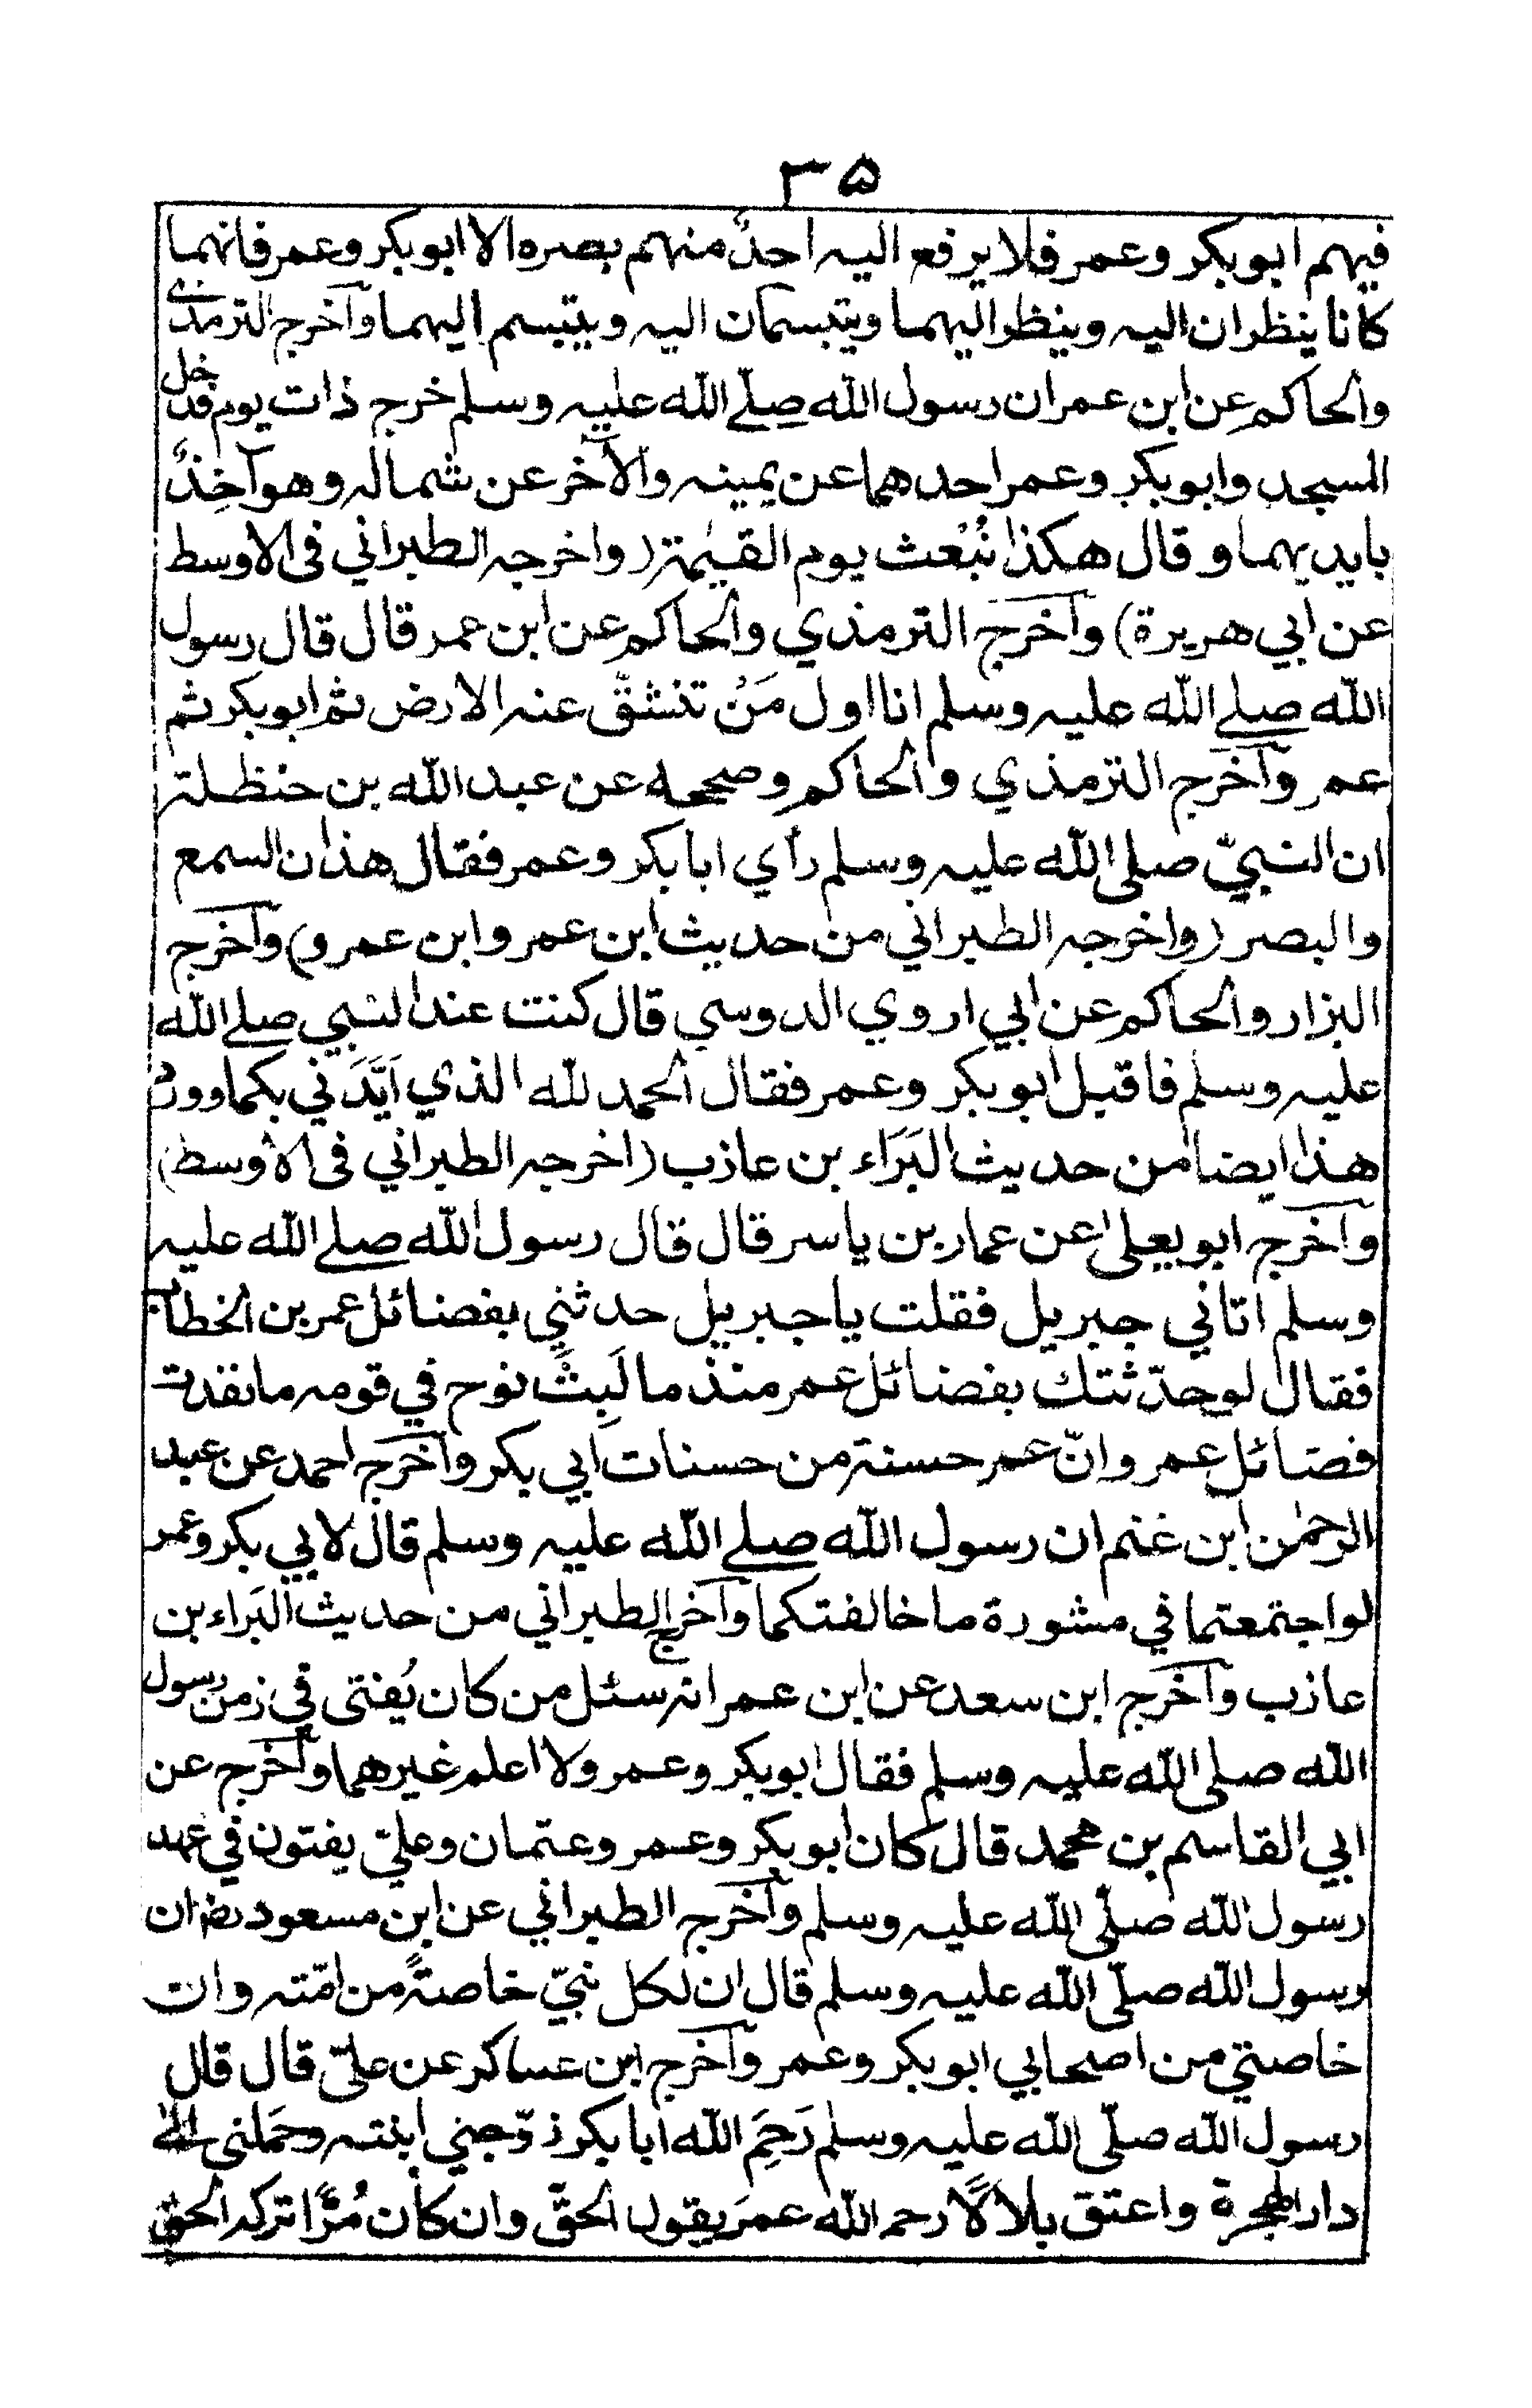 ۳۵
فيهم ابو بكر وعمر فلا يرفع اليه احدٌ منهم بصره الا ابو بكر وعمر فانهما
كانا ينظران اليه وينظر اليهما ويتبسمان اليه ويتبسم اليهما وآخرج الترمذي
والحاكم عن ابن عمر ان رسول الله صلّے الله عليه وسلم خرج ذات يوم فدخل
المسجد وابو بكر وعمر احدهما عن يمينه والآخر عن شماله وهو آخِذٌ
بايديهما وقال هكذا نُبْعث يوم القيٰمة (واخرجه الطبراني فى الاوسط
عن ابي هريرة) وآخرج الترمذي والحاكم عن ابن عمر قال قال رسول
الله صلے الله عليه وسلم انا اول مَنْ تنشقّ عنه الارض ثم ابو بكر ثم
عمر وآخرج الترمذي والحاكم وصححه عن عبد الله بن حنظلة
ان النبيّ صلى الله عليه وسلم رأي ابا بكر وعمر فقال هذان السمع
والبصر (واخرجه الطبراني من حديث ابن عمر وابن عمرو) وآخرج
البزار والحاكم عن ابي اروي الدوسي قال كنت عند النبي صلے الله
عليه وسلم فاقبل ابو بكر وعمر فقال الحمد لله الذي اَيَّدَني بكما وورد
هذا ايضا من حديث البَرَاء بن عازب (اخرجه الطبراني فى الاوسط)
وآخرج ابو يعلىٰ عن عمار بن ياسر قال قال رسول الله صلے الله عليه
وسلم اتاني جبريل فقلت يا جبريل حدثني بفضائل عمر بن الخطاب
فقال لو حدّثتك بفضائل عمر منذ ما لَبِثَ نوح في قومه ما نفدت
فضائل عمر وانّ عمر حسنة من حسنات ابي بكر وآخرج احمد عن عبد
الرحمٰن ابن غنم ان رسول الله صلے الله عليه وسلم قال لابي بكر وعمر
لو اجتمعتما في مشورة ما خالفتكما وآخرج الطبراني من حديث البَراء بن
عازب وآخرج ابن سعد عن ابن عمر انه سئل من كان يُفتى في زمن رسول
الله صلى الله عليه وسلم فقال ابو بكر وعمر ولا اعلم غيرهما وآخرج عن
ابي القاسم بن محمد قال كان ابو بكر وعمر وعثمان وعليّ يفتون في عهد
رسول الله صلّى الله عليه وسلم وآخرج الطبراني عن ابن مسعود رضـ ان
رسول الله صلّى الله عليه وسلم قال ان لكل نبيّ خاصةً من امّته وان
خاصتي من اصحابي ابو بكر وعمر وآخرج ابن عساكر عن عليّ قال قال
رسول الله صلّى الله عليه وسلم رَحِمَ الله ابا بكر زوّجني ابنته وحَملني الى
دار الهجرة واعتق بلالًا رحم الله عمرَ يقول الحقَّ وان كان مُرًّا تركه الحق